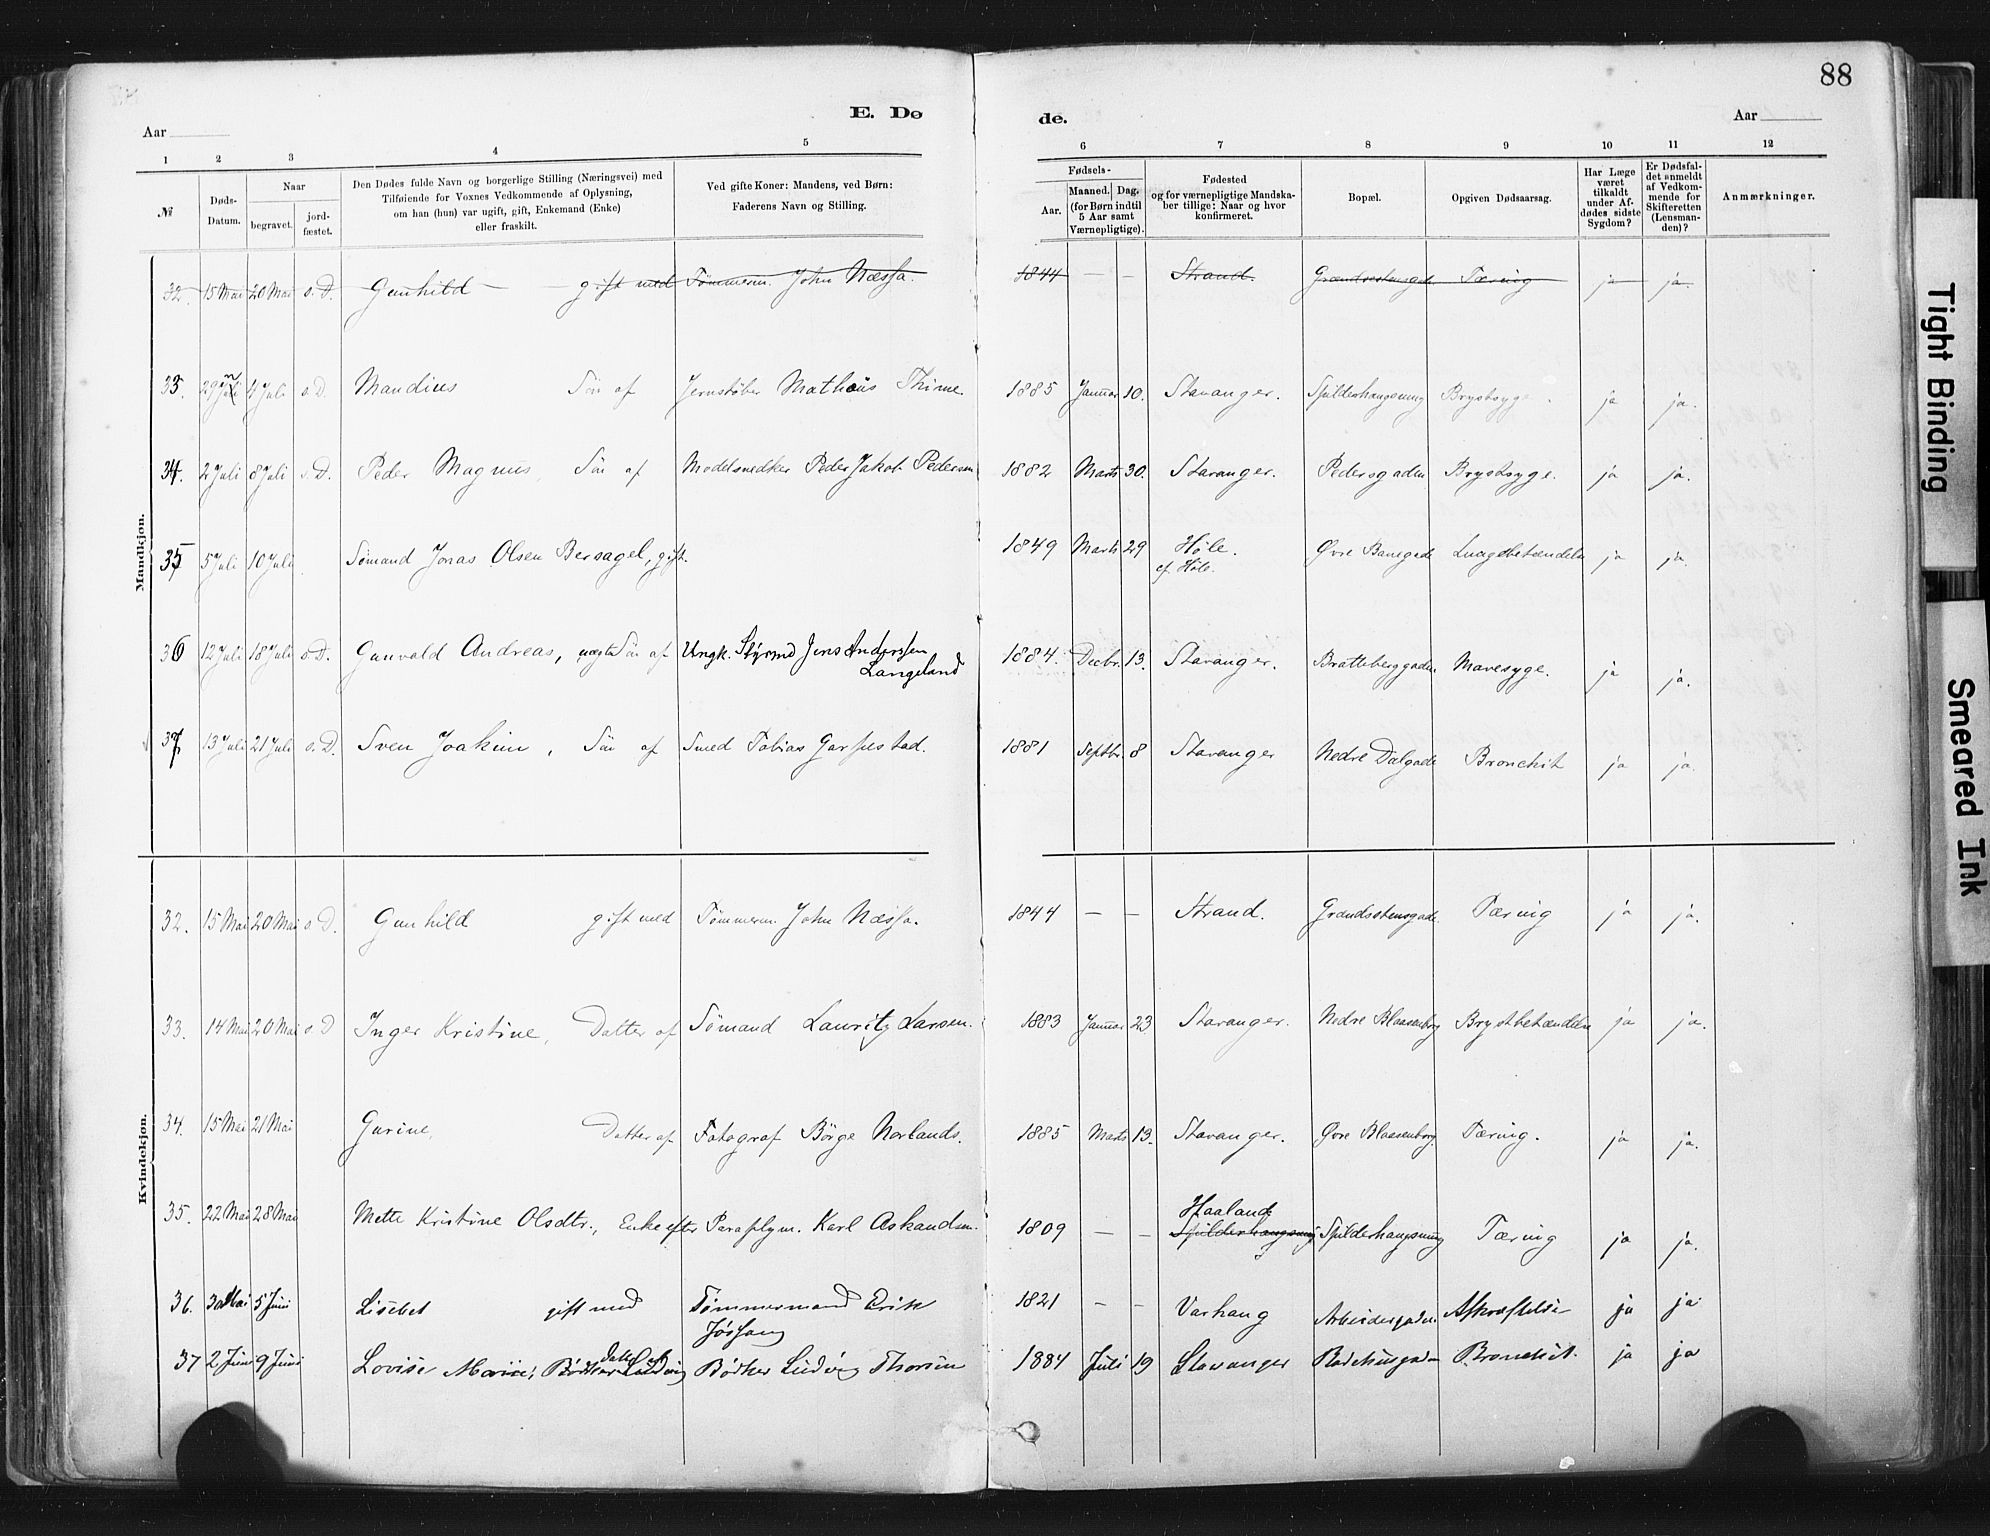 88
E. Dø de.
Aar
Aar
1 2 3 4 5 6 7 8 9 10 11 12
№
Døds-Datum.
Naar
begravet. jord-fæstet.
Den Dødes fulde Navn og borgerlige Stilling (Næringsvei) med
Tilføiende for Voxnes Vedkommende af Oplysning,
om han (hun) var ugift, gift, Enkemand (Enke)
eller fraskilt.
Ved gifte Koner: Mandens, ved Børn:
Faderens Navn og Stilling.
Fødsels-
Aar. Maaned. Dag.
(for Børn indtil
5 Aar samt
Værnepligtige).
Fødested
og for værnepligtige Mandska-
ber tillige: Naar og hvor
konfirmeret.
Bopæl.
Opgiven Dødsaarsag.
Har Læge
været
tilkaldt
under Af-
dødes sidste
Sygdom?
Er Dødsfal-
det anmeldt
af Vedkom-
mende for
Skifteretten
(Lensman-
den)?
Anmærkninger.
Mandkjøn.
32. 15 Mai 20 Mai s. D. Gunhild gift med Tømmerm. John Næssa. 1844 – – Strand. Tæring ja ja.
33. 29 4 Juli s. D. Mandius Søn af Jernstøber Mathæus Thime 1885 Januar 10. Stavanger. Spilderhaugsvning Brystsyge. ja ja.
34. 2 Juli 8 Juli s. D. Peder Magnus, Søn af Modelsnedker Peder Jakob Pedersen 1882 Marts 30. Stavanger. Pedersgaden Brystsyge. ja ja.
35 5 Juli 10 Juli Sømand Jonas Olsen Bersagel, gift. 1849 Marts 29 Høle. Øvre Banegade Lungebetændelse ja ja.
cf. Høle.
36 12 Juli 18 Juli s. D. Gunvald Andreas, uægte Søn af Ungk. Styrmd Jens Anderssen 1884. Decbr. 13. Stavanger. Bratteberggaden Mavesyge. ja ja.
Langeland
37 13 Juli 21 Juli s. D. Sven Joakim, Søn af Smed Tobias Garpestad. 1881 Septbr. 8 Stavanger Nedre Dalgade Bronchit ja ja.
Kvindekjøn.
32. 15 Mai 20 Mai s. D. Gunhild gift med Tømmerm. John Næssa. 1844 – – Strand. Grændsstensgade. Tæring ja ja.
33. 14 Mai 20 Mai s. D Inger Kristine, Datter af Sømand Lauritz Larsen. 1883 Januar 23 Stavanger. Nedre Blaasenborg Brystbetændelse ja ja.
34. 15 Mai 21 Mai Gurine, Datter af Fotograf Børge Norlands. 1885 Marts 13. Stavanger. Øvre Blaasenborg. Tæring. ja ja.
35. 22 Mai 28 Mai Mette Kristine Olsdtr., Enke efter Paraplym. Karl Askandsen. 1809 – – Haaland Spilderhaugsvning Tæring ja ja.
Spilderhaugsvning
36. 30 Mai 5 Juni Lisebet gift med Tømmermand Erik 1821 – – Varhaug Arbeidergaden. Afkræftelse ja ja.
Jøssang
37 2 Juni 9 Juni Lovise Marie, Datter af Bødker Ludvig Bødker Ludvig Thorsen 1884 Juli 19 Stavanger Bronchit. ja ja
Tight Binding
Smeared Ink